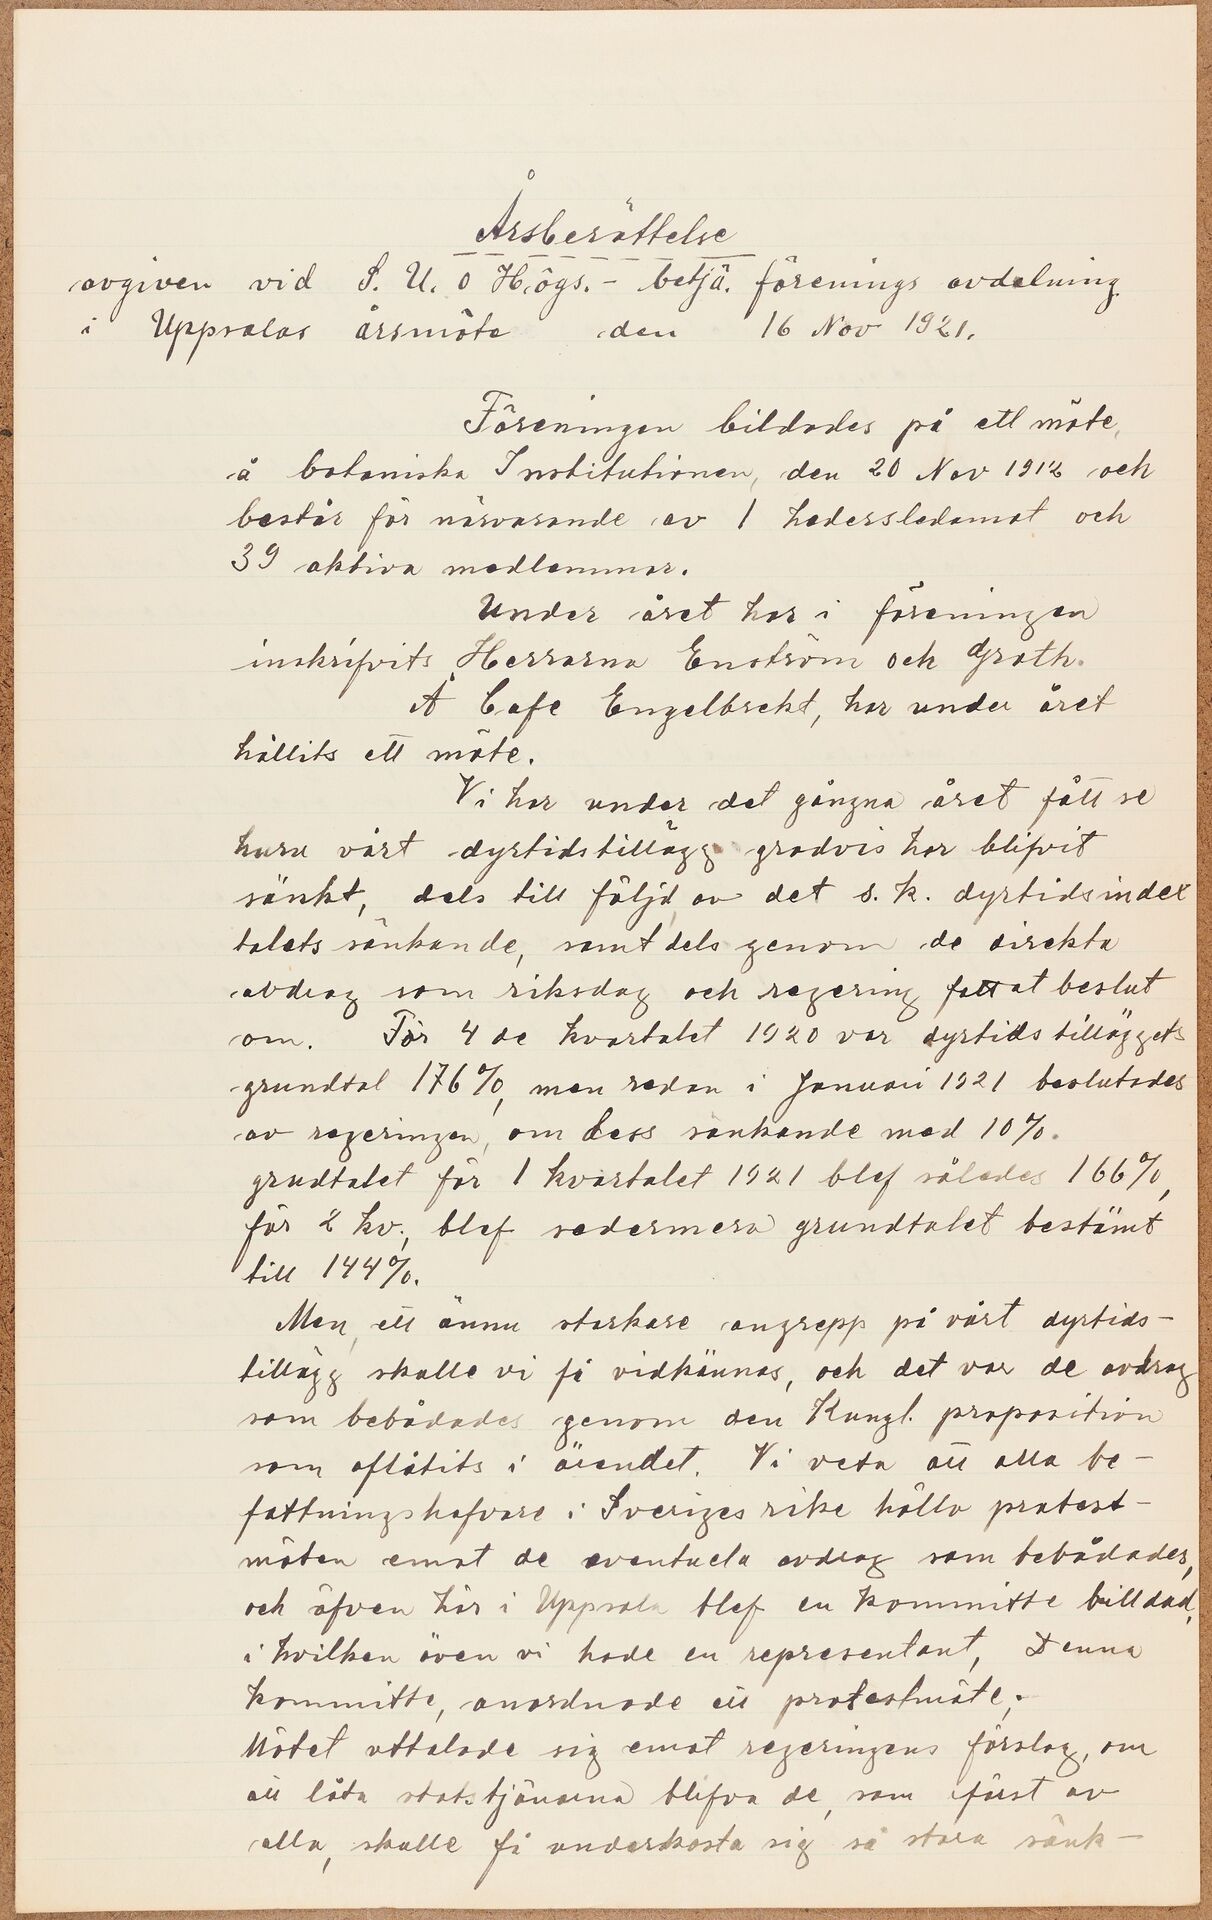 Årsberättelse
avgiven vid S. U. o Högs.- betjä. förenings avdelning
i Uppsalas årsmöte den 16 Nov 1921.
Föreningen bildades på ett möte,
å botaniska Institutionen, den 20 Nov 1912 och
består för närvarande av 1 hedersledamot och
39 aktiva medlemmar.
Under året har i föreningen
inskrifvits Herrarna Enström och Groth.
Å Cafe Engelbrekt, har under året
hållits ett möte.
Vi har under det gångna året fått se
huru vårt dyrtidstillägg gradvis har blifvit
sänkt, dels till följd av det s.k. dyrtidsindex
talets sänkande, samt dels genom de direkta
avdrag som riksdag och regering fattat beslut
om. För 4 de kvartalet 1920 var dyrtidstilläggets
grundtal 176%, men redan i Januari 1921 beslutades
av regeringen, om dess sänkande med 10%.
grudtalet för 1 kvartalet 1921 blef således 166%,
för 2 kv., blef sedermera grundtalet bestämt
till 144%.
Men, ett ännu starkare angrepp på vårt dyrtids-
tillägg skulle vi få vidkännas, och det var de avdrag
som bebådades genom den Kungl. proposition
som aflåtits i ärendet. Vi veta att alla be-
fattningshafvare i Sveriges rike höllo protest-
möten emot de eventuela avdrag som bebådades,
och äfven här i Uppsala blef en kommitte billdad,
i hvilken även vi hade en representant, Denna
kommitte, anordnade ett protestmöte,.
Mötet uttalade sig emot regeringens förslag, om
att låta statstjänarna blifva de, som först av
alla, skulle få underkasta sig så stora sänk-